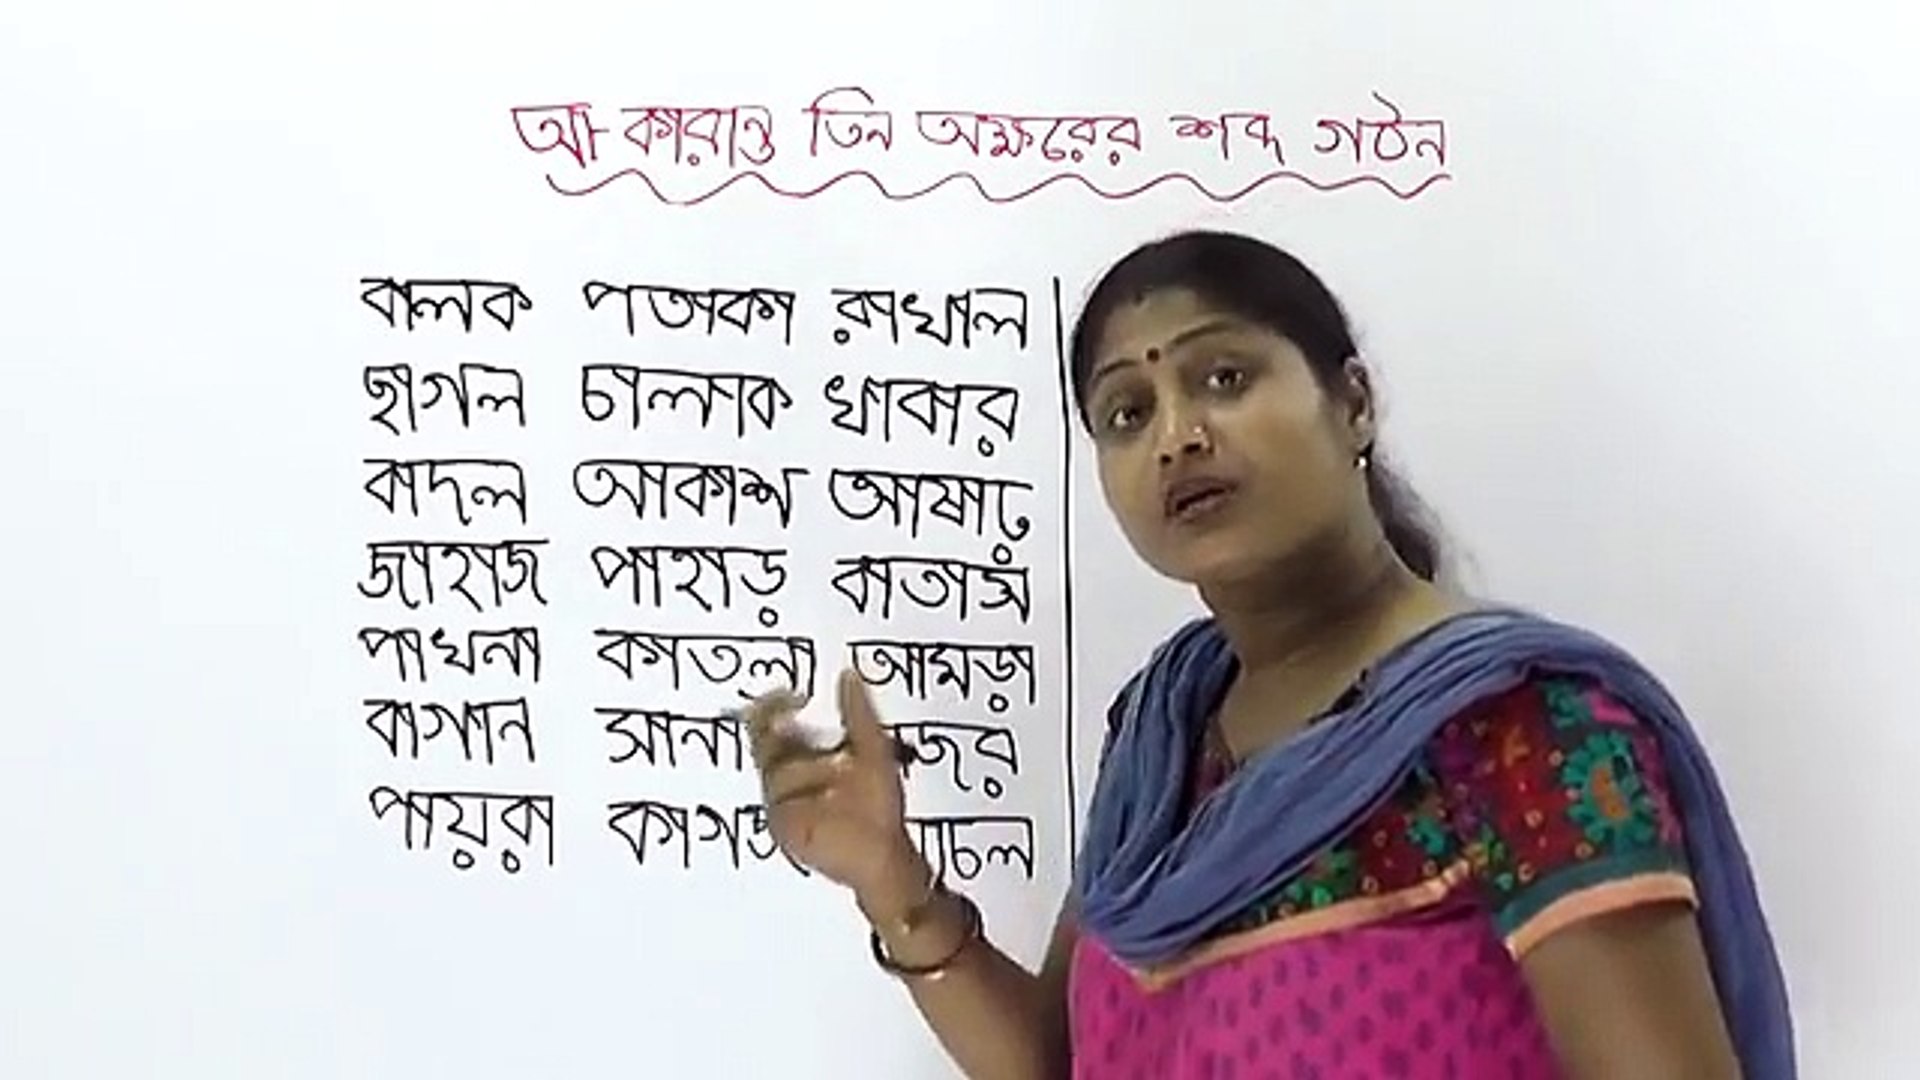 আ-কারান্ত তিন অক্ষরের শব্দ গঠন
বালক পতাকা রাখাল
ছাগল চালাক খাবার
বাদল আকাশ আষাঢ়
জাহাজ পাহাড় বাতাস
পাখনা কাতলা আমড়া
বাগান
পায়রা